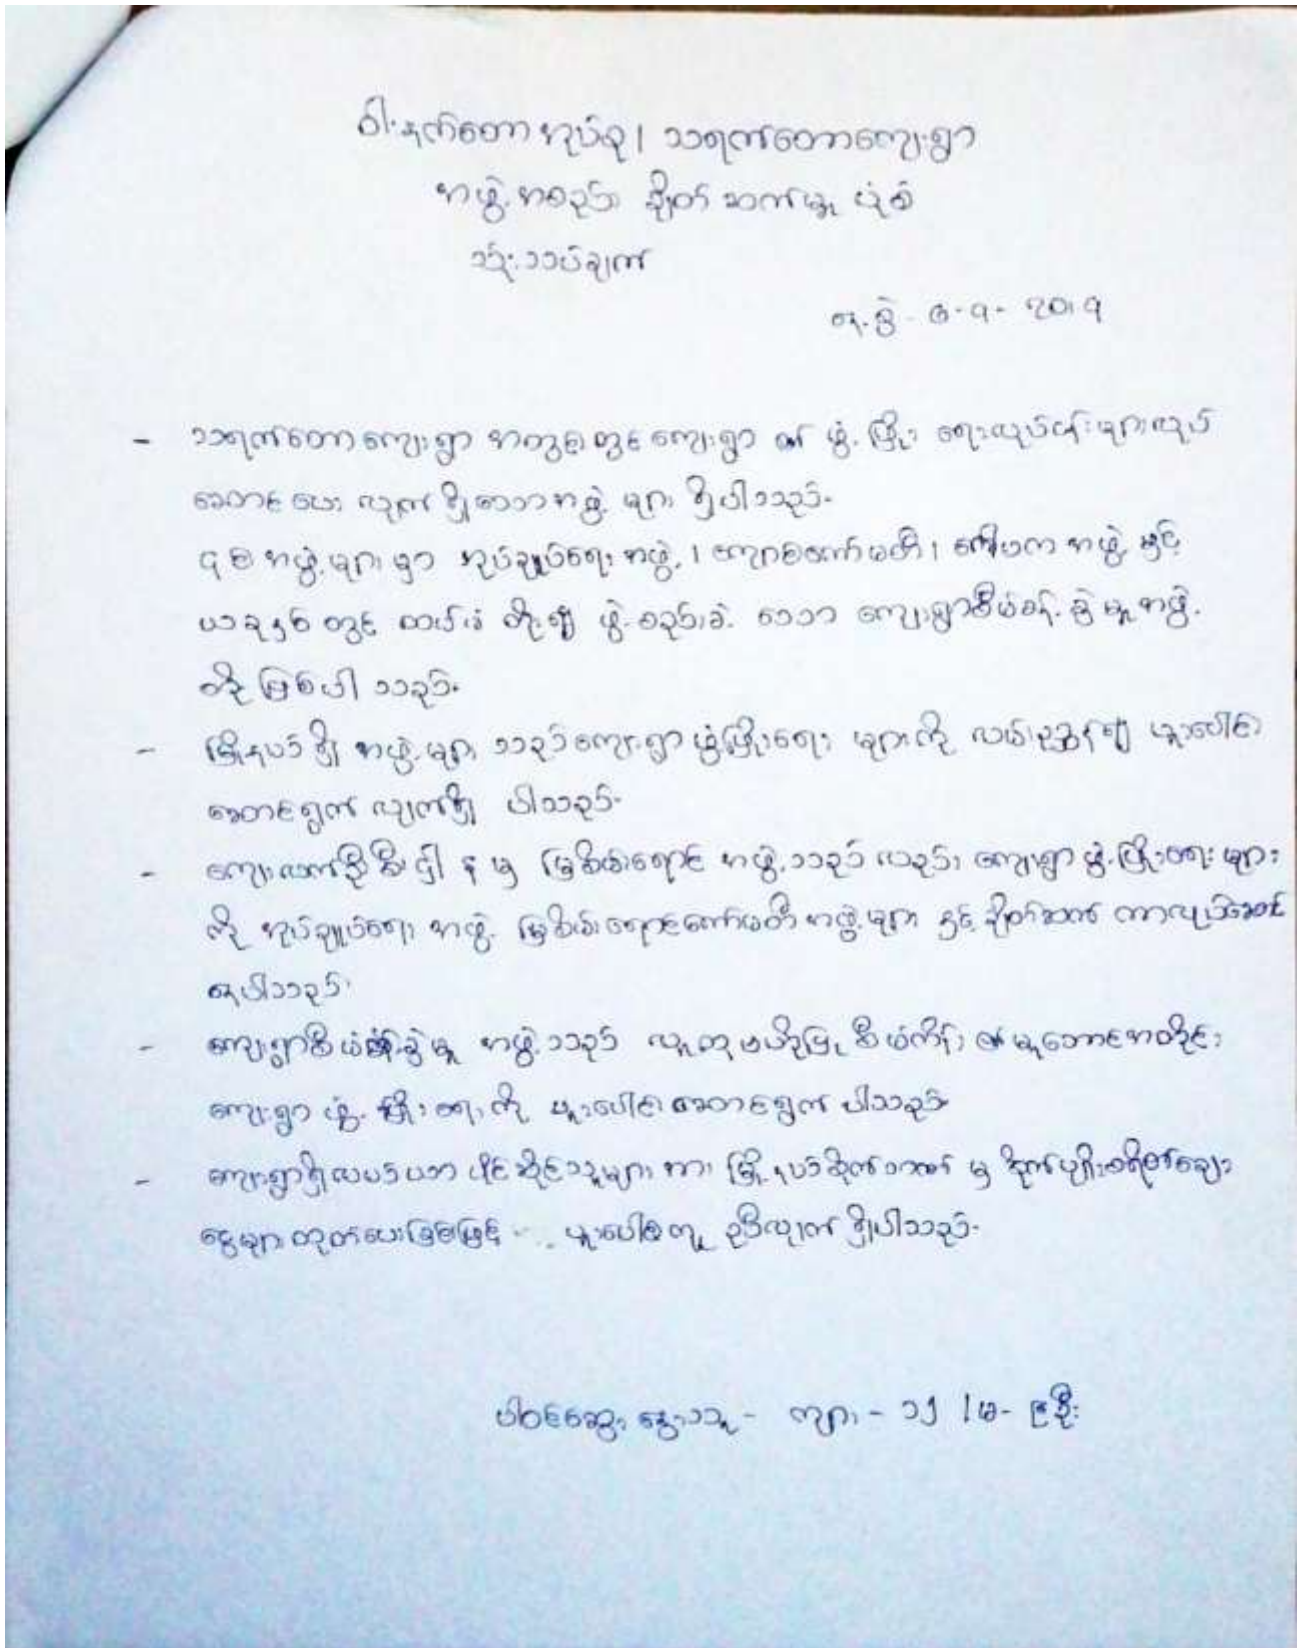 ဝါးနက်တောအုပ်စု၊ သရက်တောကျေးရွာ
အဖွဲ့အစည်း ချိတ်ဆက်မှု ပုံစံ
သုံးသပ်ချက်
နေ့စွဲ - ၆-၁- ၂၀၁၇
- သရက်တောကျေးရွာ အတွင်းတွင်ကျေးရွာ ၏ ဖွံ့ဖြိုးရေးလုပ်ငန်းများလုပ်
ဆောင်ပေးလျက်ရှိသောအဖွဲ့များရှိပါသည်။
၎င်းအဖွဲ့များမှာ အုပ်ချုပ်ရေးအဖွဲ့၊ ကျောင်းကော်မတီ၊ အဖွဲ့နှင့်
ယခုနှစ်တွင် ထပ်မံတိုး၍ ဖွဲ့စည်းခဲ့သော ကျေးရွာစီမံခန့်ခွဲမှုအဖွဲ့
တို့ဖြစ်ပါသည်။
- မြို့နယ်ရှိ အဖွဲ့များသည်ကျေးရွာဖွံ့ဖြိုးရေးများကို လမ်းညွှန်၍ ပူးပေါင်း
ဆောင်ရွက်လျက်ရှိ ပါသည်။
- ကျေးလက်ဦးစီးဌါနမှ မြစိမ်းရောင်အဖွဲ့သည်လည်း ကျေးရွာဖွံ့ဖြိုးရေးများ
ကို အုပ်ချုပ်ရေးအဖွဲ့ မြစိမ်းရောင်ကော်မတီအဖွဲ့များနှင့် ချိတ်ဆက်ကာလုပ်ဆောင်
နေပါသည်။
- ကျေးရွာစီမံခန့်ခွဲမှု အဖွဲ့သည် လူထုဗဟိုပြုစီမံကိန်း ၏မူဘောင်အတိုင်း
ကျေးရွာဖွံ့ဖြိုးရေးကို ပူးပေါင်းဆောင်ရွက်ပါသည်။
- ကျေးရွာရှိလယ်ယာပိုင်ဆိုင်သူများအား မြို့နယ်စိုက်ဘဏ်မှ စိုက်ပျိုးစရိတ်ချေး
ငွေများထုတ်ပေးခြင်းဖြင့် ပူးပေါင်းကူညီလျက်ရှိပါသည်။
ပါဝင်ဆွေးနွေးသူ - ကျား - ၁၅ /မ - ၉ဦး